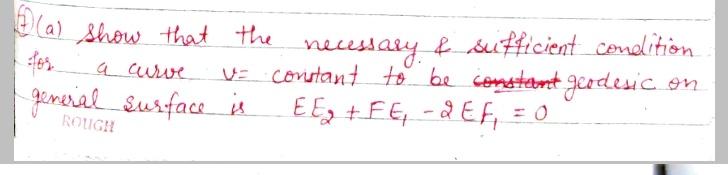 7(a) Show that the necessary & sufficient condition
for a curve v= constant to be constant geodesic on
general surface is EE₂ + FE₁ - 2EF₁ = 0
ROUGH